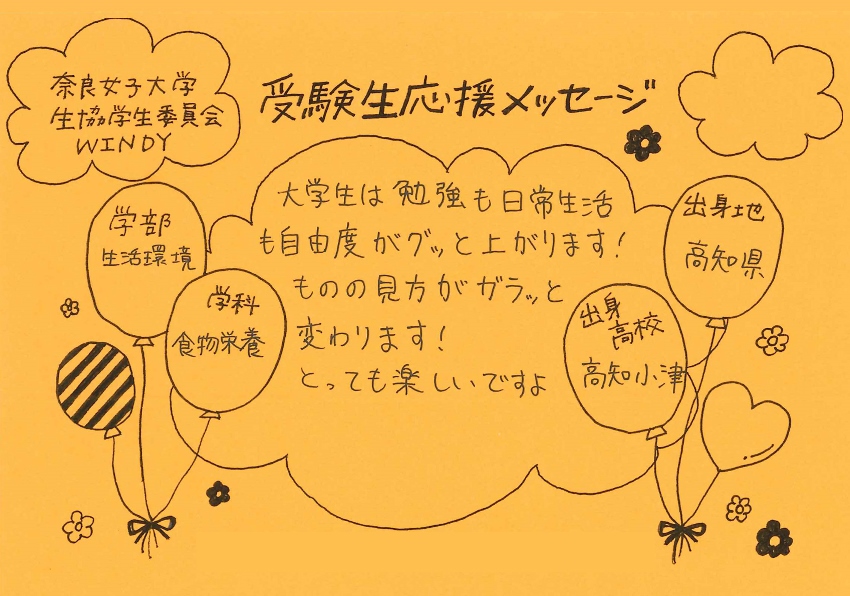 奈良女子大学
生協学生委員会
WINDY
受験生応援メッセージ
大学生は勉強も日常生活
も自由度がグッと上がります!
ものの見方がガラッと
変わります!
とっても楽しいですよ
学部
生活環境
学科
食物栄養
出身地
高知県
出身
高校
高知小津